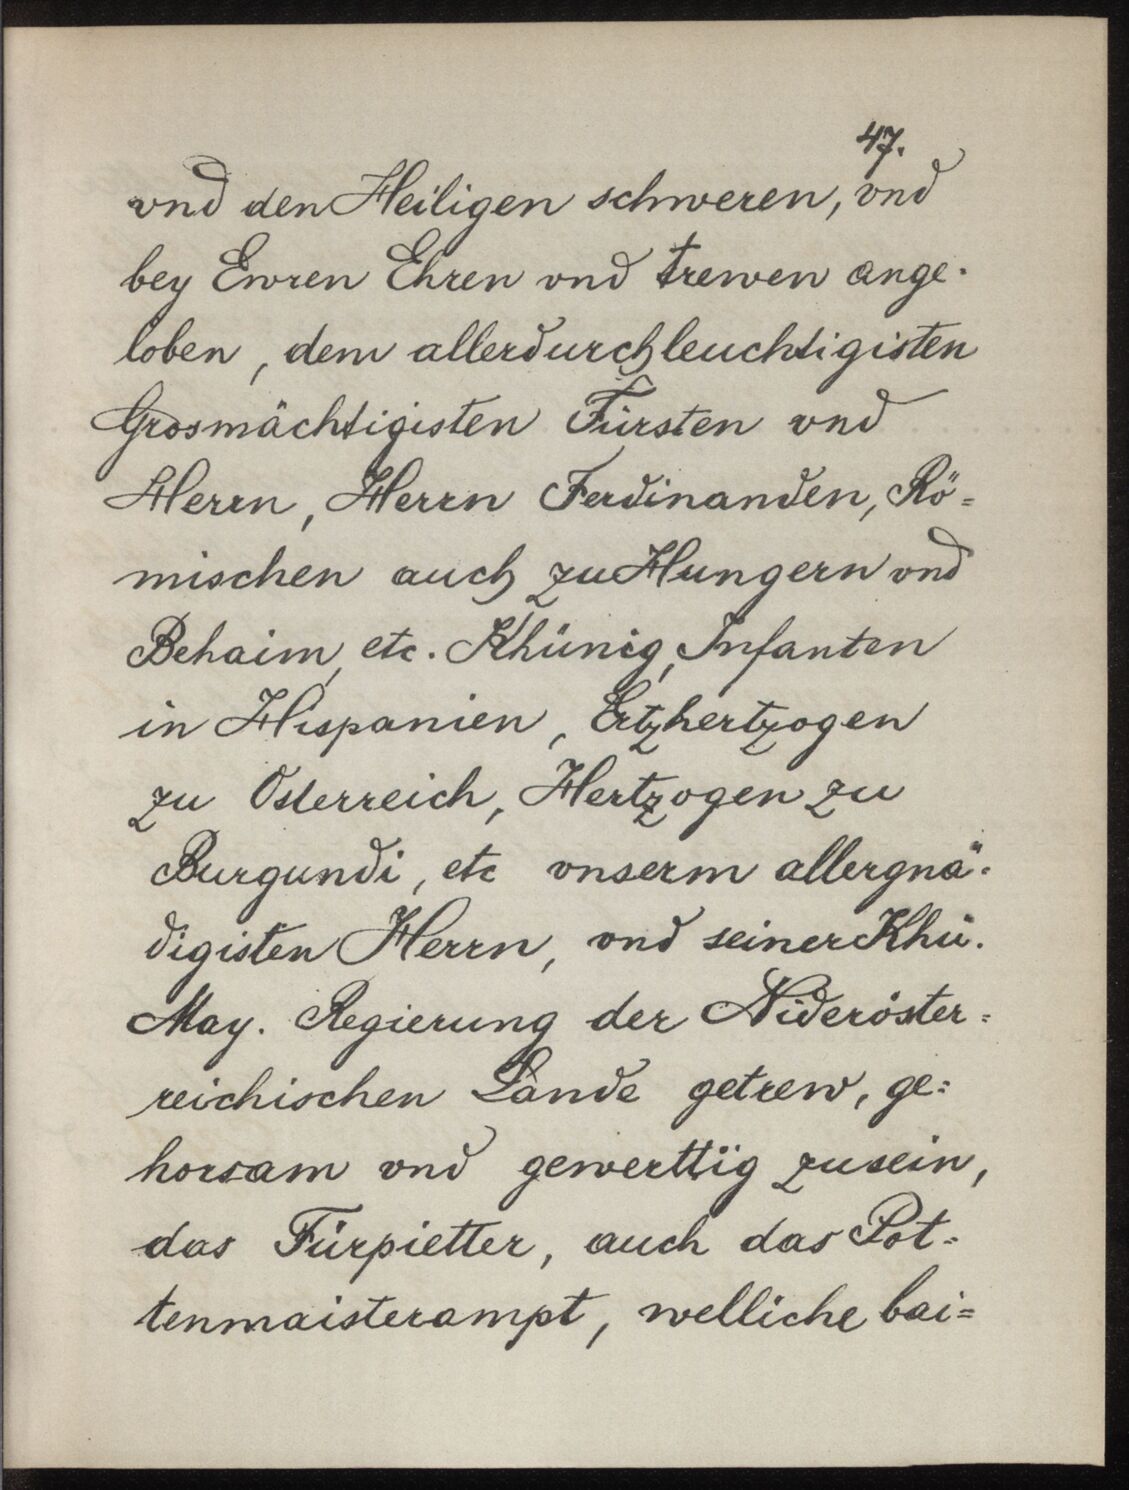 47.
vnd den Heiligen schweren, vnd
bey Ewren Ehren vnd trewen ange-
loben, dem allerdurchleuchtigisten
Grosmächtigisten Fürsten vnd
Herrn, Herrn Ferdinanden, Rö=
mischen auch zu Hungern vnd
Behaim, etc. Khünig, Infanten
in Hispanien, Ertzhertzogen
zu Osterreich, Hertzogen zu
Burgundi, etc vnserm allergnä-
digisten Herrn, vnd seiner Khü.
May. Regierung der Nideröster=
reichischen Lande getrew, ge=
horsam vnd gewerttig zusein,
das Fürpietter, auch das Pot=
tenmaisterampt, welliche bai=